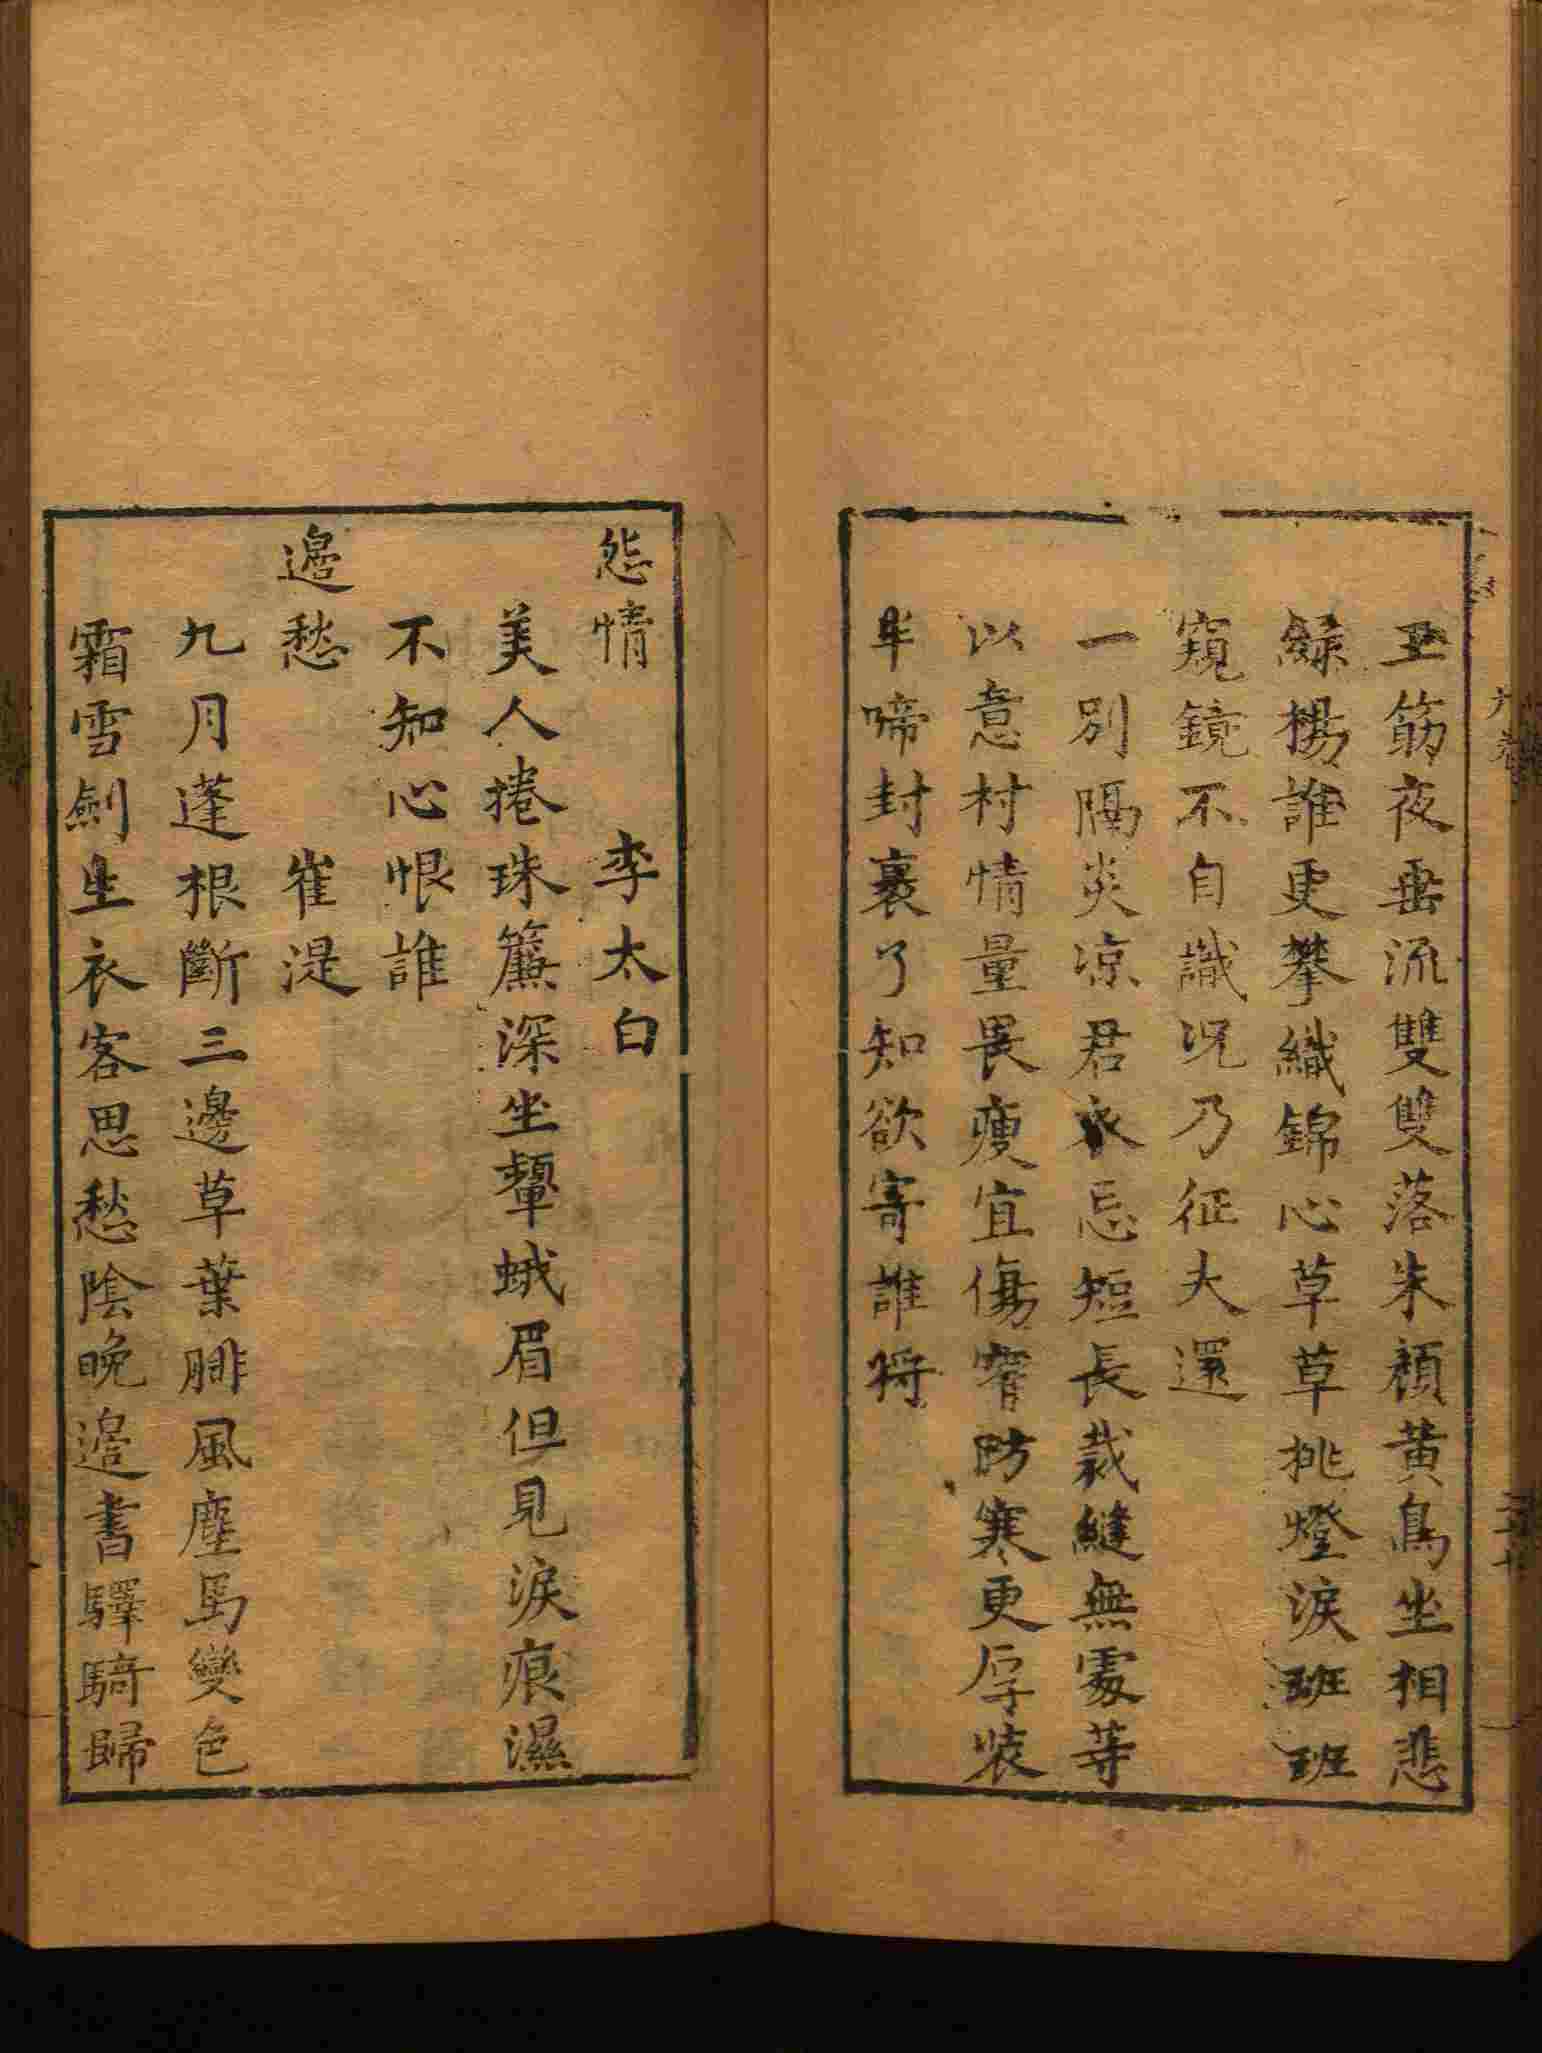 玉筯夜垂流雙雙落朱顏黃鳥坐相悲
綠楊誰更攀織錦心草草挑燈淚班班
窺鏡不自識况乃征夫還
一別隔炎凉君衣忘短長裁縫無處等
以意村情量畏瘦宜傷窄防寒更厚裝
半啼封裹了知欲寄誰將
怨情 李太白
美人捲珠簾深坐顰蛾眉但見淚痕濕
不知心恨誰
邊愁 崔湜
九月蓬根斷三邊草葉腓風塵馬變色
霜雪劍生衣客思愁陰晚邊書驛騎歸